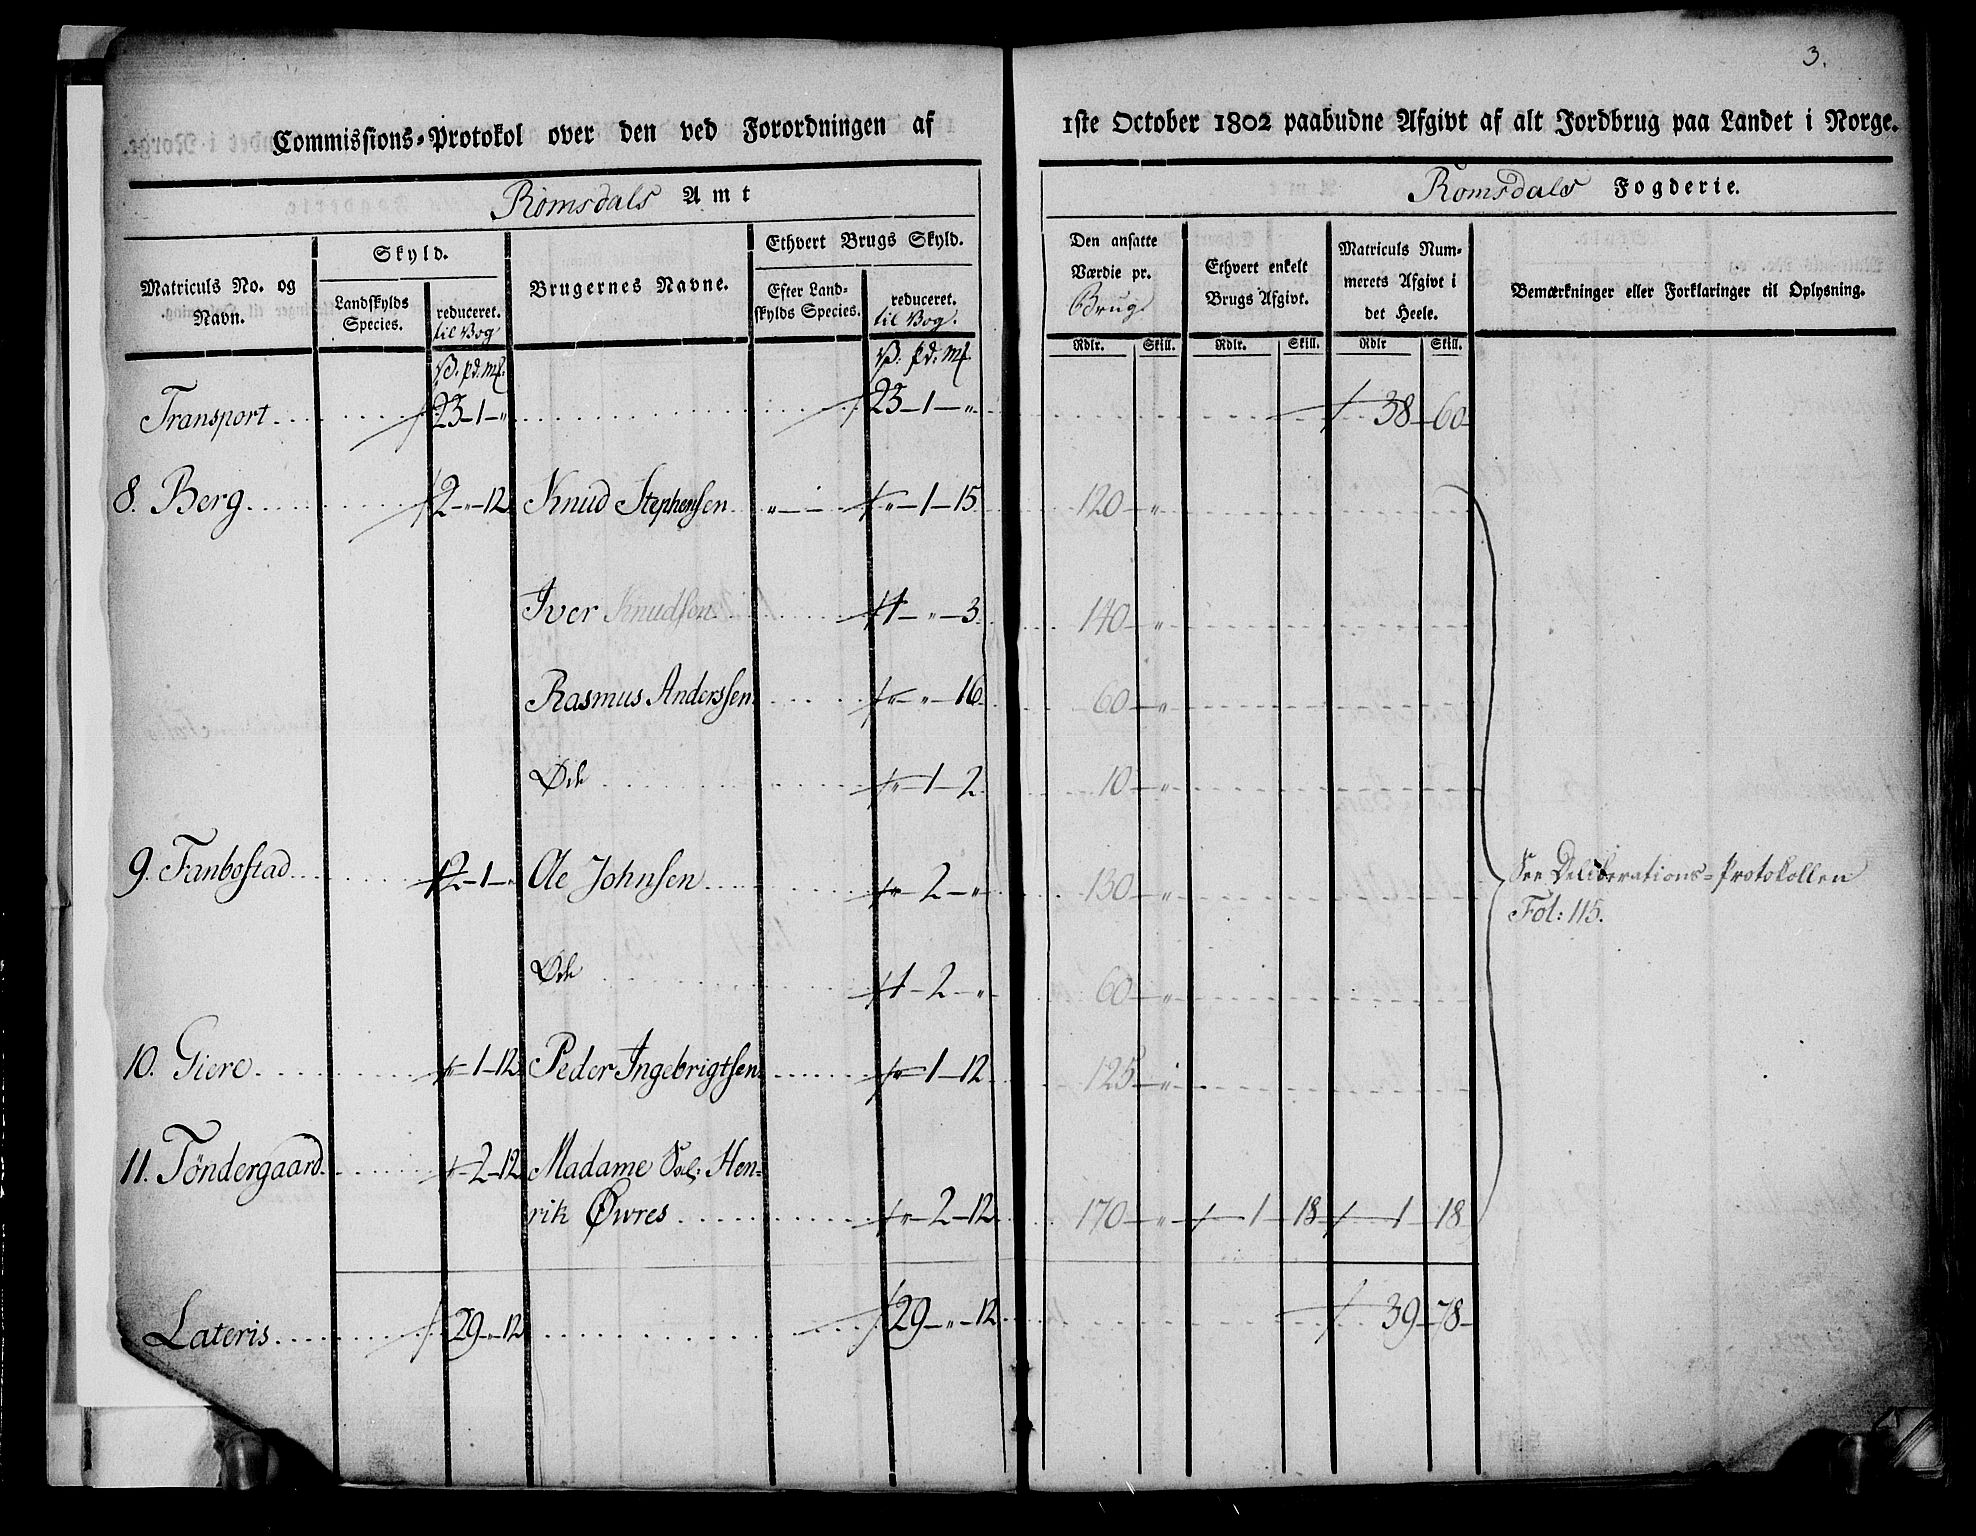 3.
Commissions-Protokol over den ved Forordningen af 1ste October 1802 paabudne Afgivt af alt Jordbrug paa Landet i Norge.
Romsdals Amt
Romsdals Fogderie.
Matriculs No. og Navn.
Skyld.
Landskylds Species.
reduceret. til Vog
Brugernes Navne.
Ethvert Brugs Skyld.
Efter Landskylds Species.
reduceret. til Vog.
Den ansatte Værdie pr. Brug
Ethvert enkelt Brugs Afgivt.
Matriculs Nummerets Afgivt i det Heele.
Bemærkninger eller Forklaringer til Oplysning.
V. pd. mk. V. pd. mk. Rdlr. Skill. Rdlr. Skill. Rdlr Skill.
Transport 23-1-" 23-1-" 38-60
8. Berg 2-"-12 Knud Stephensen "-1-15 120-"
Iver Knudsen 1-"-3 140-"
Rasmus Anderssen "-"-16 60-"
Öde "-1-2 10-"
9. Fanbostad 2-1-" Ole Johnsen "-2-" 130-"
See Deliberations-Protokollen
Fol: 115.
Öde 1-2-" 60-"
10. Giere "-1-12 Peder Ingebrigtsen "-1-12 125-"
11. Töndergaard 2-12 Madame Sal: Hen-
rik Öwres "-2-12 170-" 1-18 1-18
Lateris 29-"-12 29-"-12 39-78